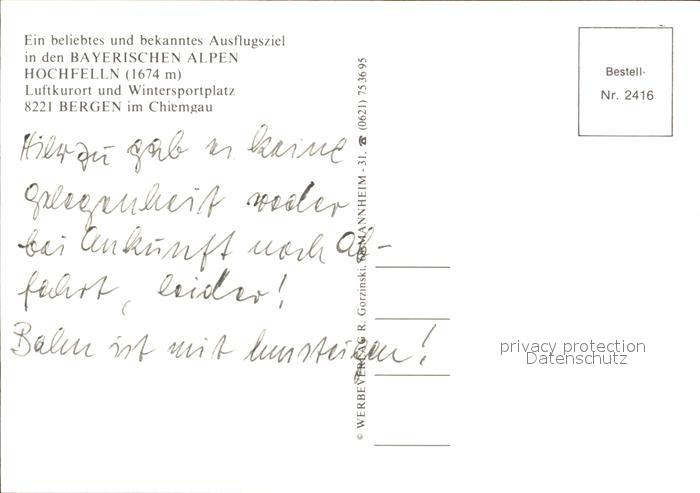 Ein beliebtes und bekanntes Ausflugsziel
in den BAYERISCHEN ALPEN
HOCHFELLN (1674 m)
Luftkurort und Wintersportplatz
8221 BERGEN im Chiemgau
Hierzu gab es keine
Gelegenheit weder
bei Ankunft noch Ab-
fahrt, leider!
Bahn ist mit Umsteigen!
© WERBEVERLAG R. Gorzinski, 68 MANNHEIM - 31, ☎ (0621) 753695
Bestell-
Nr. 2416
privacy protection
Datenschutz